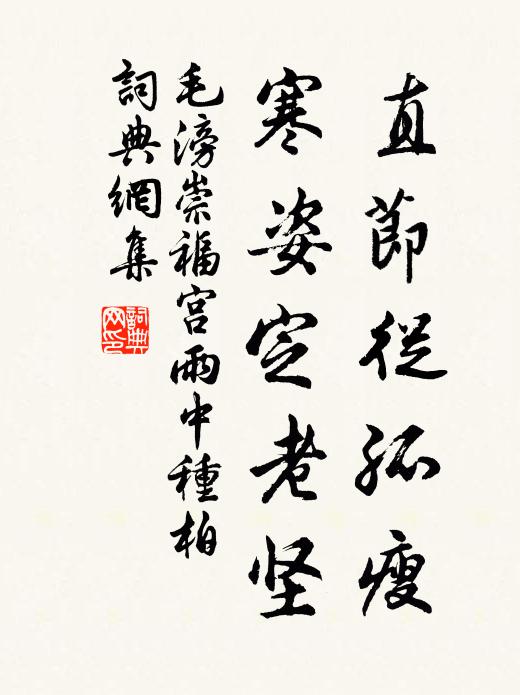 直節從孤瘦
寒姿定老坚
毛滂崇福宮雨中種柏
詞典網集
詞典
网印